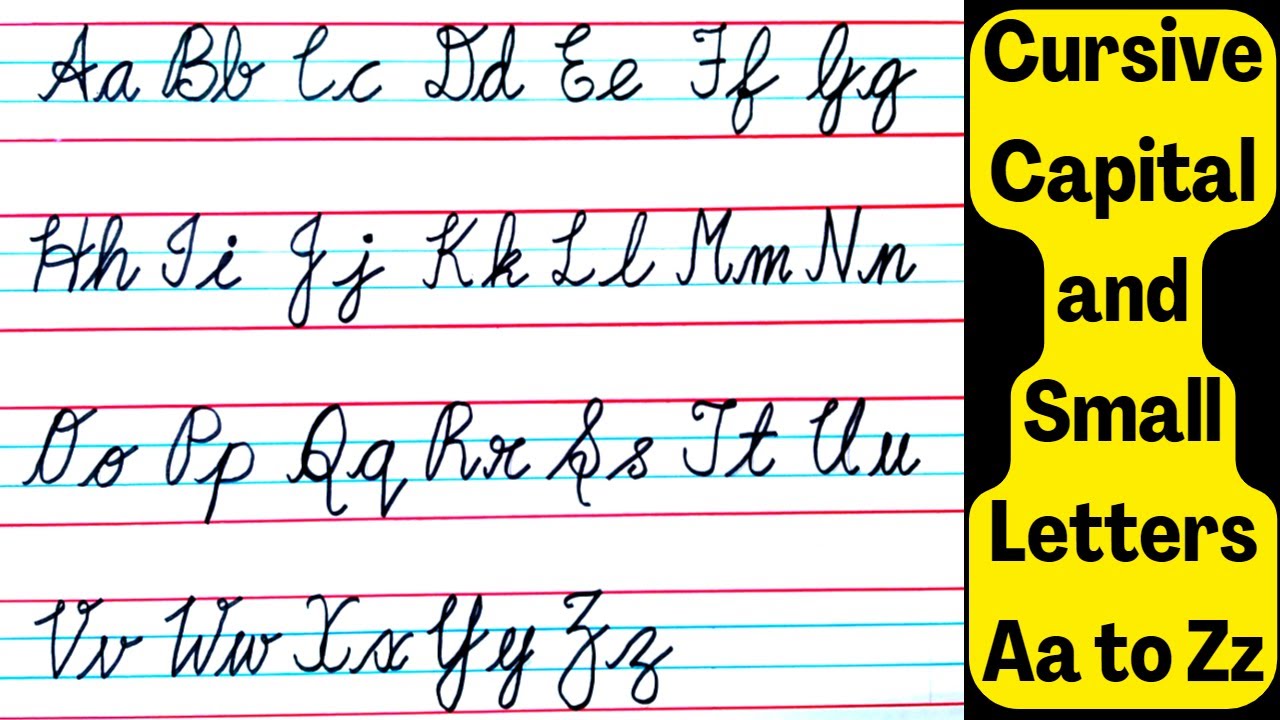 Aa Bb Cc Dd Ee Ff Gg
Hh Ii Jj Kk Ll Mm Nn
Oo Pp Qq Rr Ss Tt Uu
Vv Ww Xx Yy Zz
Cursive
Capital
and
Small
Letters
Aa to Zz